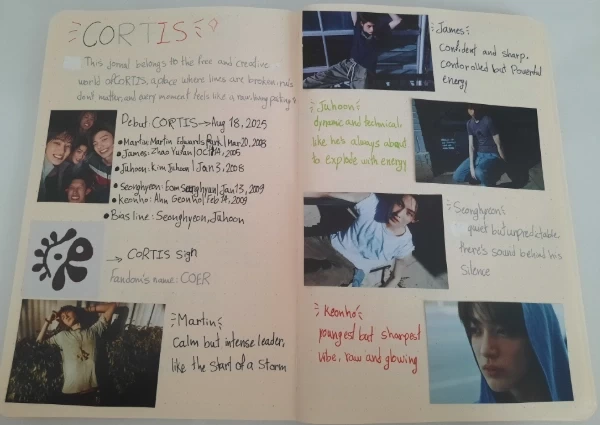 CORTIS
This jornal belongs to the free and creative
world of CORTIS, a place where lines are broken, rules
dont matter, and every moment feels like a raw, living
Debut: CORTIS → Aug 18, 2025
• Martin: Martin Edwards Park | Mar 20, 2008
• James: Zhao Yufan | Oct 14, 2005
• Juhoon: Kim Juhoon | Jan 3, 2008
• Seonghyeon: Eom Seonghyun | Jan 13, 2009
• Keonho: Ahn Geonho | Feb 14, 2009
• Bias line: Seonghyeon, Juhoon
→ CORTIS sign
Fandom's name: COER
Martin
Calm but intense leader,
like the start of a storm
James
Confident and sharp.
controlled but powerful
energy
Juhoon
dynamic and technical,
like he's always about
to explode with energy
Seonghyeon
quiet but unpredictable,
there's sound behind his
silence
Keonho
youngest but sharpest
vibe, raw and glowing